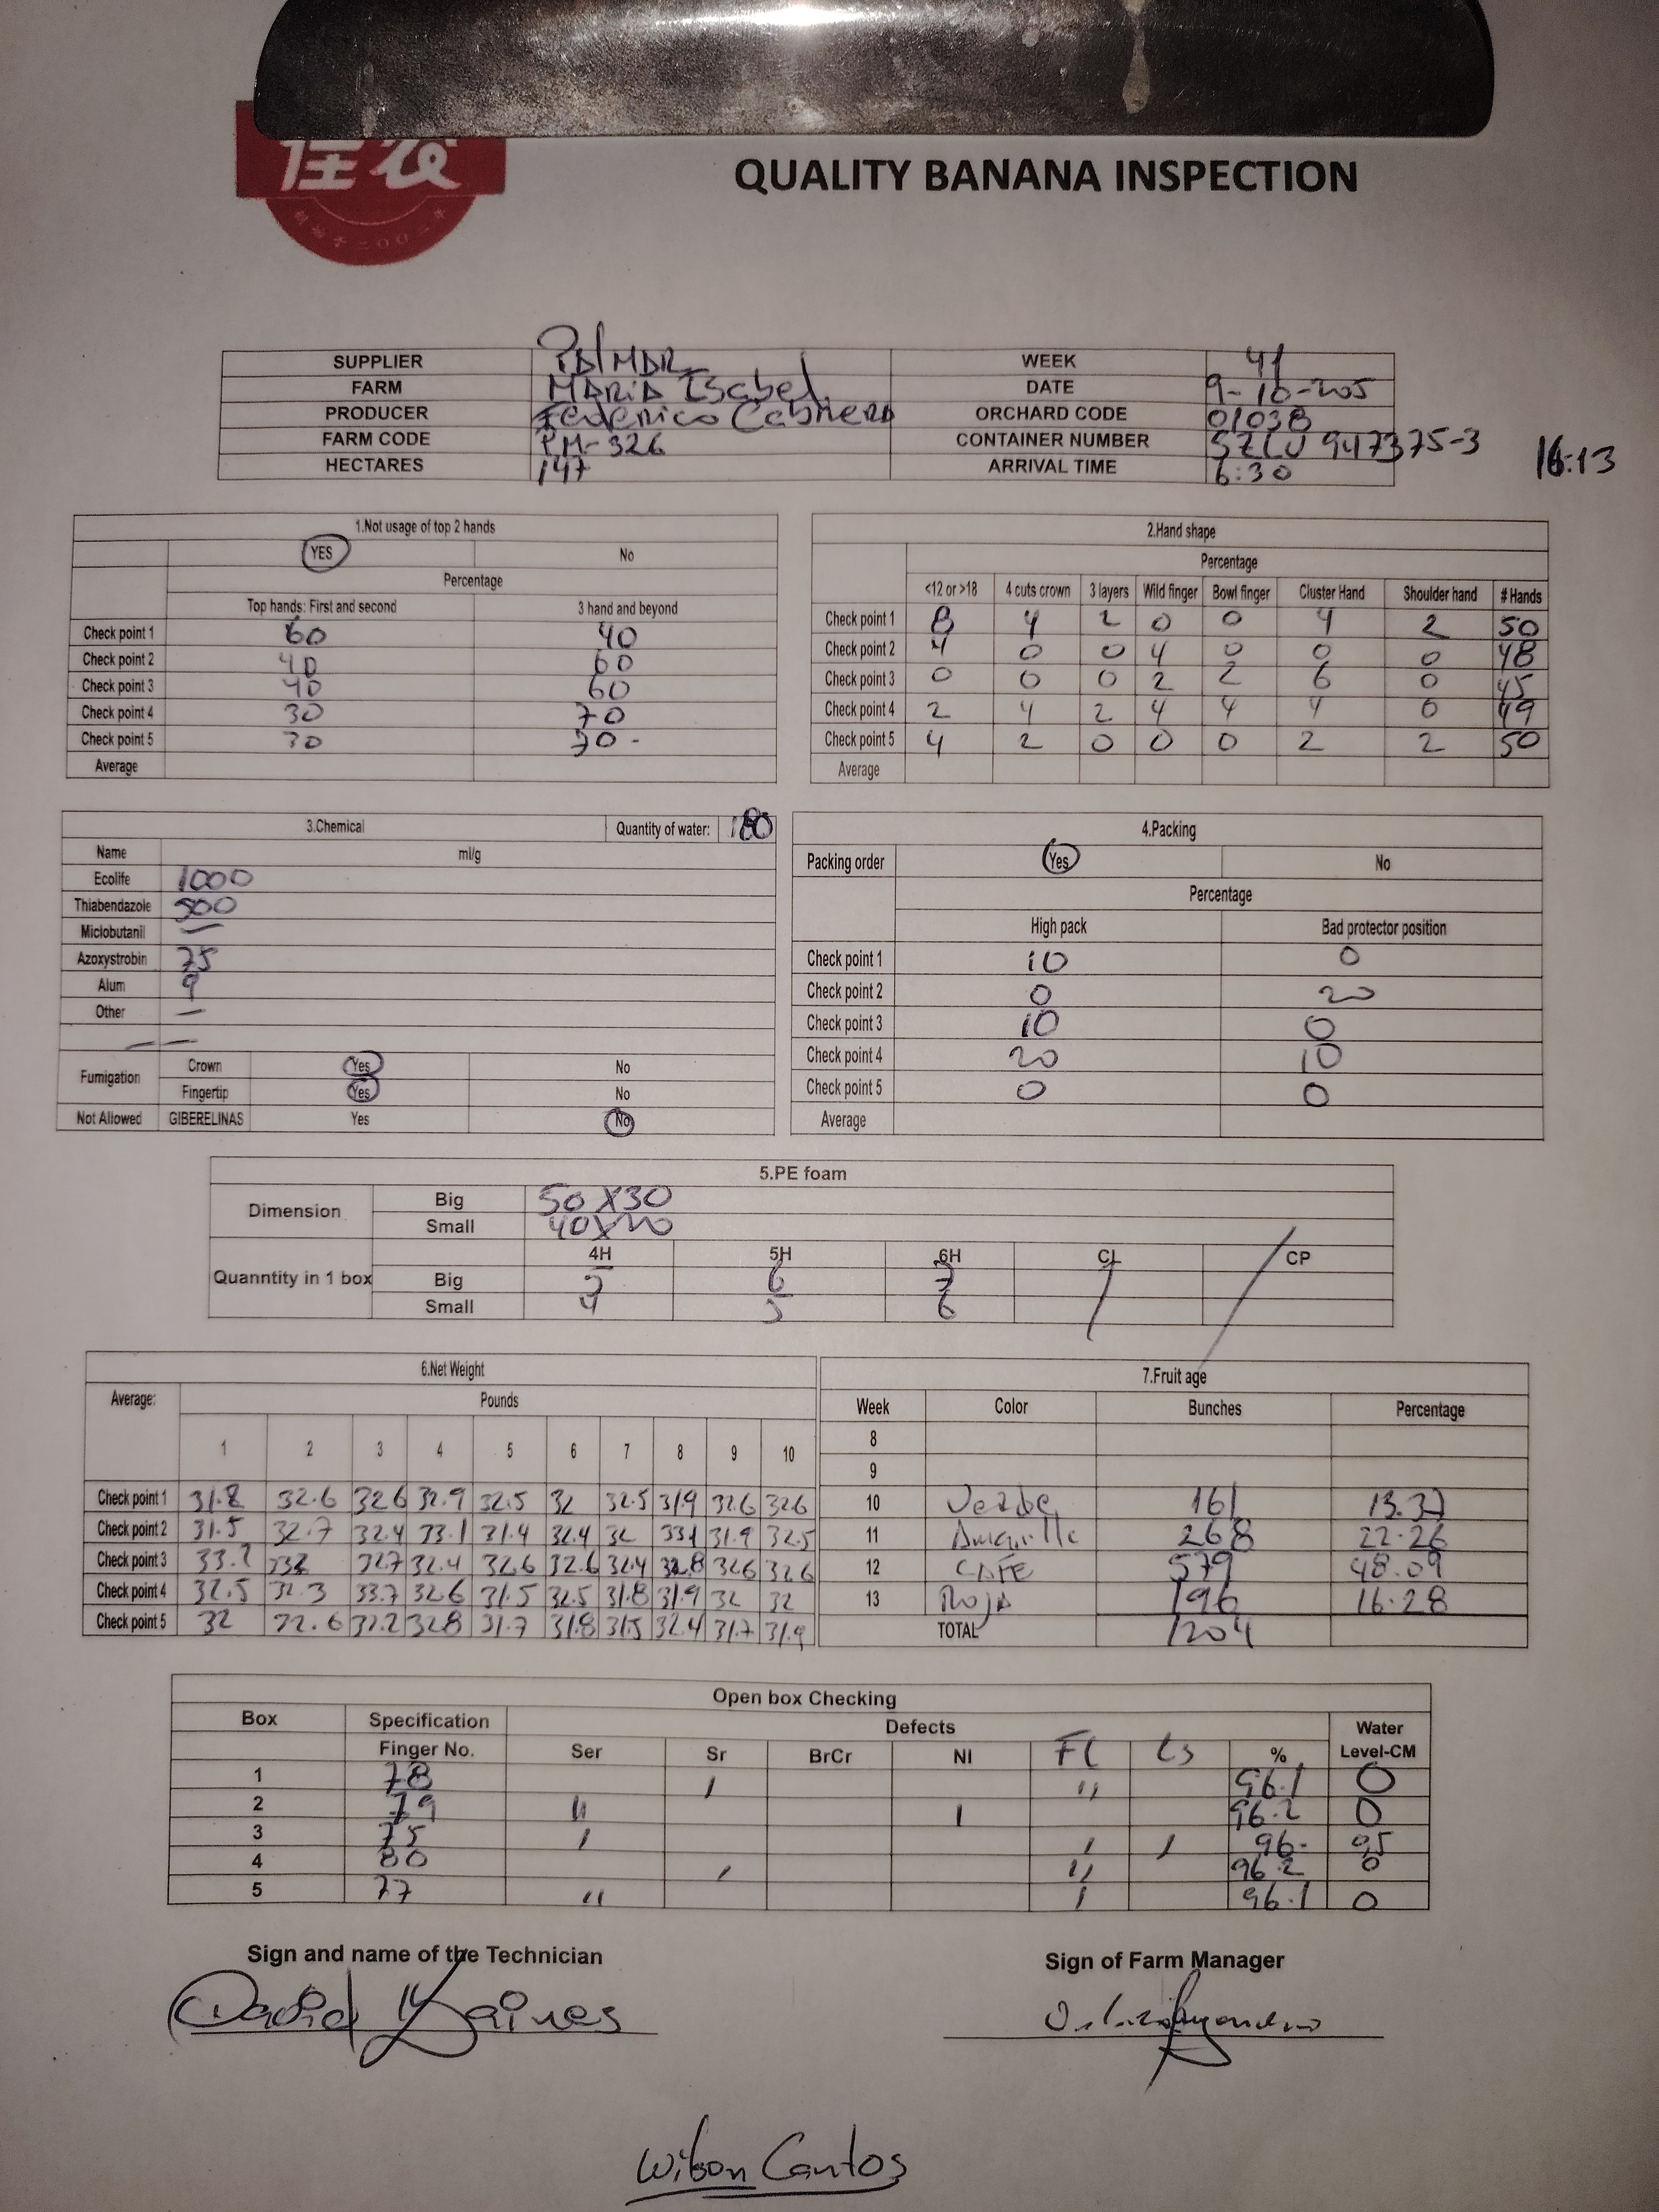 佳农
QUALITY BANANA INSPECTION
SUPPLIER PALMAR WEEK 41
FARM MARIA Isabel DATE 9-10-205
PRODUCER Federico Cabrera ORCHARD CODE 01038
FARM CODE PM-326 CONTAINER NUMBER SZLU 947375-3
HECTARES 147 ARRIVAL TIME 6:30 16:13
1.Not usage of top 2 hands
YES No
Percentage
Top hands: First and second 3 hand and beyond
Check point 1 60 40
Check point 2 40 60
Check point 3 40 60
Check point 4 30 70
Check point 5 30 70 -
Average
2.Hand shape
Percentage
<12 or >18 4 cuts crown 3 layers Wild finger Bowl finger Cluster Hand Shoulder hand # Hands
Check point 1 8 4 2 0 0 4 2 50
Check point 2 4 0 0 4 0 0 0 48
Check point 3 0 0 0 2 2 6 0 45
Check point 4 2 4 2 4 4 4 0 49
Check point 5 4 2 0 0 0 2 2 50
Average
3.Chemical Quantity of water: 180
Name ml/g
Ecolife 1000
Thiabendazole 500
Miclobutanil —
Azoxystrobin 75
Alum 9
Other —
— —
Fumigation Crown Yes No
Fingertip Yes No
Not Allowed GIBERELINAS Yes No
4.Packing
Packing order Yes No
Percentage
High pack Bad protector position
Check point 1 10 0
Check point 2 0 20
Check point 3 10 0
Check point 4 20 10
Check point 5 0 0
Average
5.PE foam
Dimension Big 50 X30
Small 40X40
4H 5H 6H CL CP
Quanntity in 1 box Big 5 6 7
Small 4 5 6
6.Net Weight
Average: Pounds
1 2 3 4 5 6 7 8 9 10
Check point 1 31.8 32.6 32.6 32.9 32.5 32 32.5 31.9 32.6 32.6
Check point 2 31.5 32.7 32.4 33.1 31.4 32.4 32 33.1 31.9 32.5
Check point 3 33.2 33.2 32.7 32.4 32.6 32.6 32.4 32.8 32.6 32.6
Check point 4 32.5 32.3 33.7 32.6 31.5 32.5 31.8 31.9 32 32
Check point 5 32 32.6 32.2 32.8 31.7 31.8 31.5 32.4 31.7 31.9
7.Fruit age
Week Color Bunches Percentage
8
9
10 Verde 161 13.37
11 Amarillo 268 22.26
12 CAFE 579 48.09
13 Rojo 196 16.28
TOTAL 1204
Open box Checking
Box Specification Defects Water
Finger No. Ser Sr BrCr NI FL LS % Level-CM
1 78 / // 96.1 0
2 79 // / 96.2 0
3 75 / / / 96. 95
4 80 / // 96.2 0
5 77 // / 96.1 0
Sign and name of the Technician Sign of Farm Manager
David Gaines
Wilson Cantos